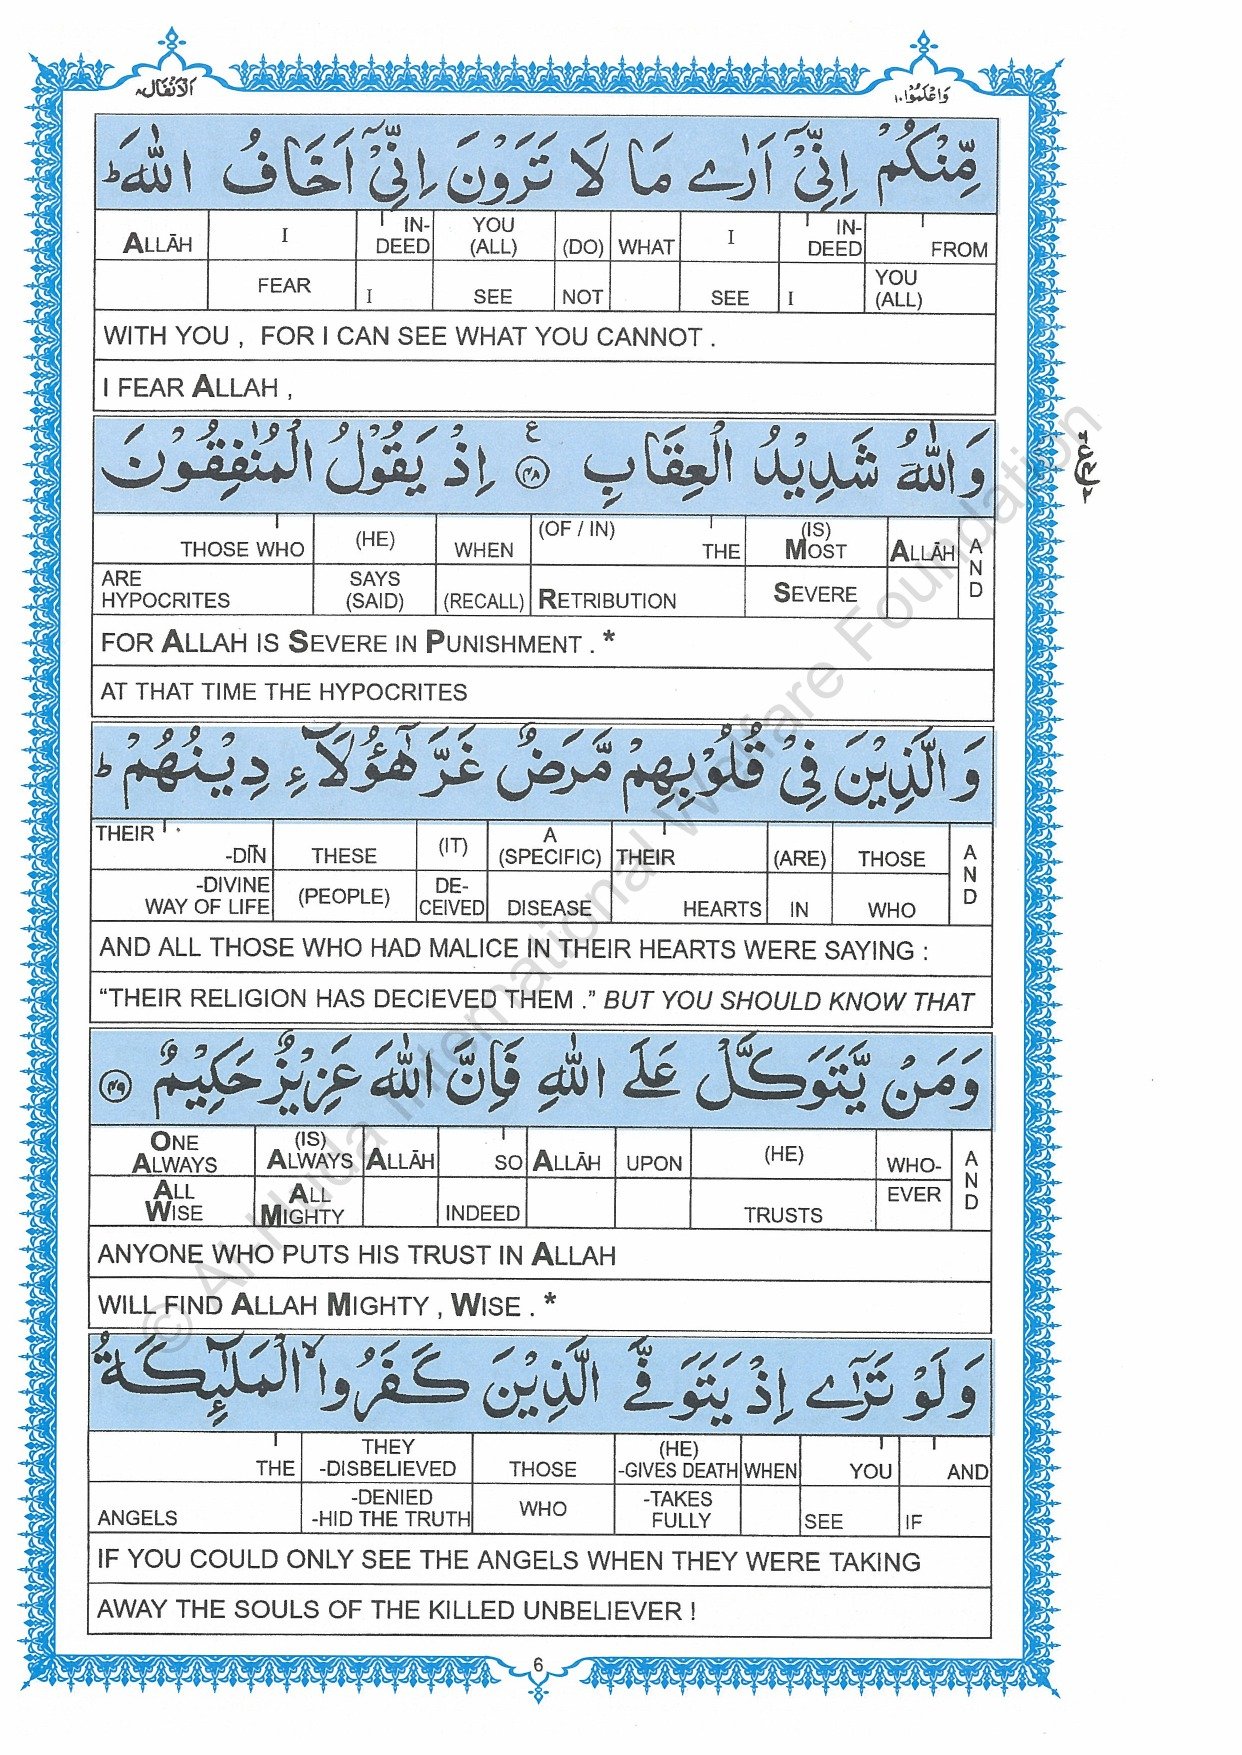 وَاعْلَمُوْا ١٠
اَلْاَنْفَال ٨
مِّنْكُمْ اِنِّيْٓ اَرٰى مَا لَا تَرَوْنَ اِنِّيْٓ اَخَافُ اللّٰهَ ؕ
ALLĀH | I | IN-DEED | YOU (ALL) | (DO) | WHAT | I | IN-DEED | FROM
FEAR | I | SEE | NOT | SEE | I | YOU (ALL)
WITH YOU , FOR I CAN SEE WHAT YOU CANNOT .
I FEAR ALLAH ,
وَاللّٰهُ شَدِيْدُ الْعِقَابِ ۴۸ ع اِذْ يَقُوْلُ الْمُنٰفِقُوْنَ
THOSE WHO | (HE) | WHEN | (OF / IN) THE | (IS) MOST | ALLĀH | AND
ARE HYPOCRITES | SAYS (SAID) | (RECALL) | RETRIBUTION | SEVERE
FOR ALLAH IS SEVERE IN PUNISHMENT . *
AT THAT TIME THE HYPOCRITES
وَالَّذِيْنَ فِيْ قُلُوْبِهِمْ مَّرَضٌ غَرَّ هٰٓؤُلَآءِ دِيْنُهُمْ ؕ
THEIR -DĪN | THESE | (IT) | A (SPECIFIC) | THEIR | (ARE) | THOSE | AND
-DIVINE WAY OF LIFE | (PEOPLE) | DE-CEIVED | DISEASE | HEARTS | IN | WHO
AND ALL THOSE WHO HAD MALICE IN THEIR HEARTS WERE SAYING :
“THEIR RELIGION HAS DECIEVED THEM .” BUT YOU SHOULD KNOW THAT
وَمَنْ يَّتَوَكَّلْ عَلَى اللّٰهِ فَاِنَّ اللّٰهَ عَزِيْزٌ حَكِيْمٌ ۴۹
ONE ALWAYS | (IS) ALWAYS | ALLĀH | SO | ALLĀH | UPON | (HE) | WHO- | AND
ALL WISE | ALL MIGHTY | INDEED | TRUSTS | EVER
ANYONE WHO PUTS HIS TRUST IN ALLAH
WILL FIND ALLAH MIGHTY , WISE . *
وَلَوْ تَرٰٓى اِذْ يَتَوَفَّى الَّذِيْنَ كَفَرُوا ۙ الْمَلٰٓئِكَةُ
THE | THEY -DISBELIEVED | THOSE | (HE) -GIVES DEATH | WHEN | YOU | AND
ANGELS | -DENIED -HID THE TRUTH | WHO | -TAKES FULLY | SEE | IF
IF YOU COULD ONLY SEE THE ANGELS WHEN THEY WERE TAKING
AWAY THE SOULS OF THE KILLED UNBELIEVER !
6
© Al Huda International Welfare Foundation